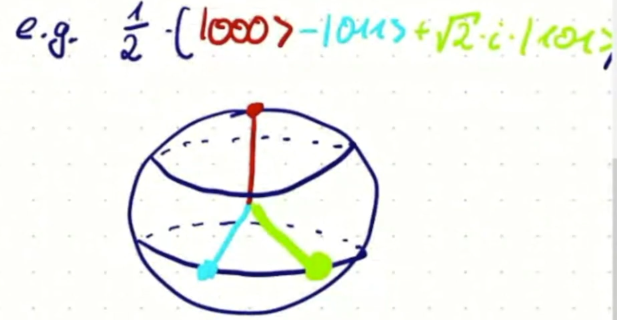 e.g. 1/2 · (|000> - |011> + √2 · i · |101>)